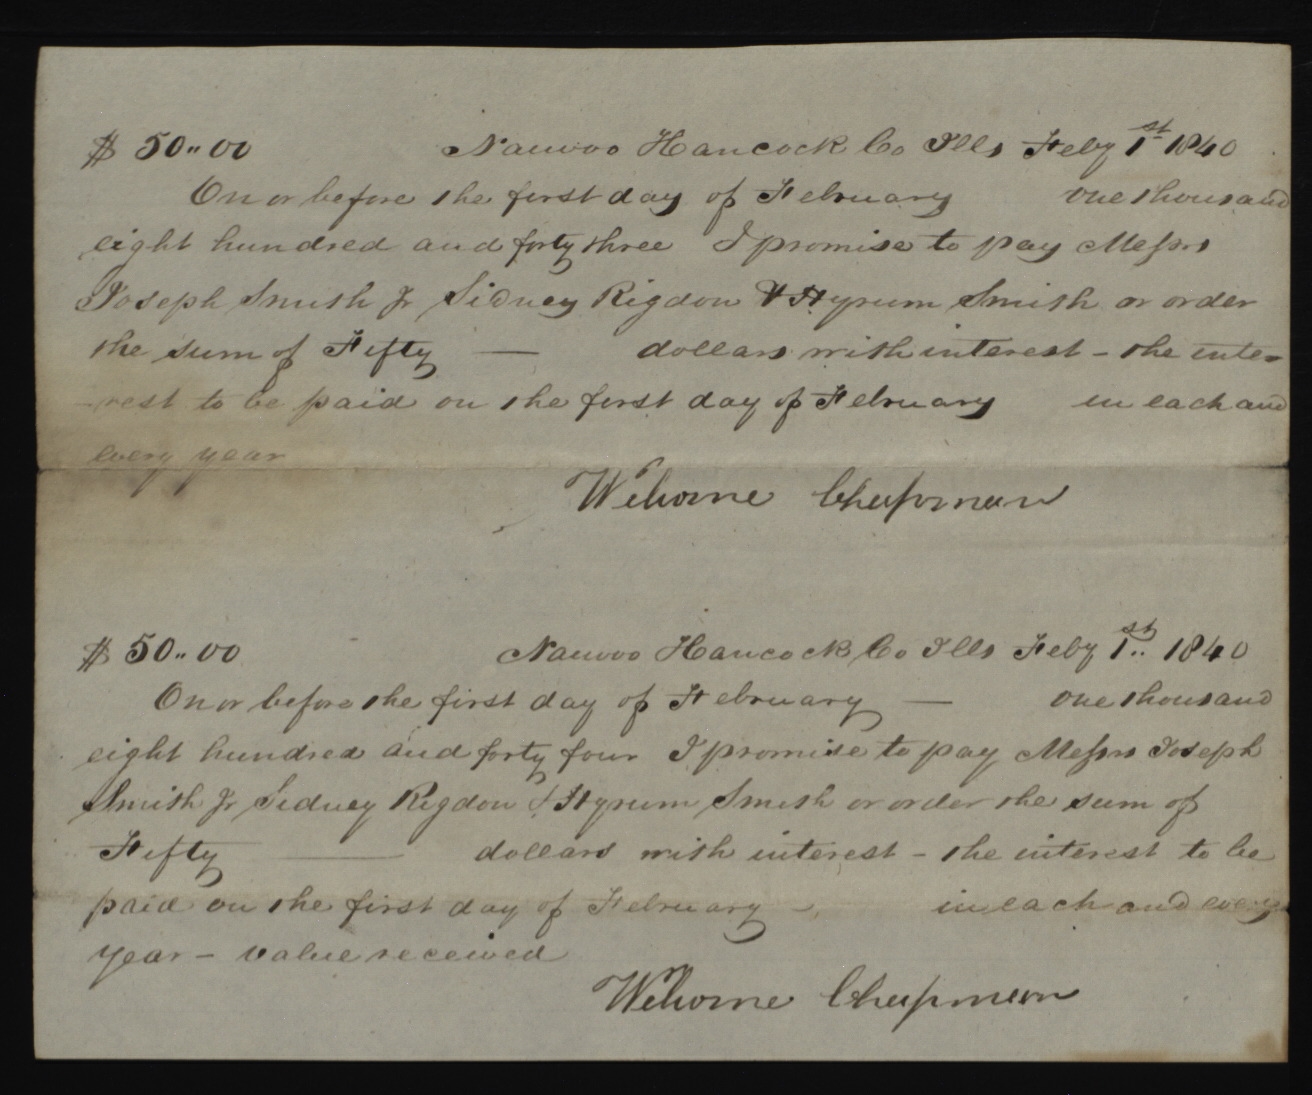 $ 50.. 00 Nauvoo Hancock Co Ills Feby 1st 1840
On or before the first day of February one thousand
eight hundred and forty three I promise to pay Messrs
Joseph Smith Jr Sidney Rigdon & Hyrum Smith or order
the sum of Fifty — dollars with interest - the inte-
-rest to be paid on the first day of February in each and
every year
Welcome Chapman
$ 50.. 00 Nauvoo Hancock Co Ills Feby 1st.. 1840
On or before the first day of February — one thousand
eight hundred and forty four I promise to pay Messrs Joseph
Smith Jr Sidney Rigdon & Hyrum Smith or order the sum of
Fifty — dollars with interest - the interest to be
paid on the first day of February - in each and every
year - value received
Welcome Chapman